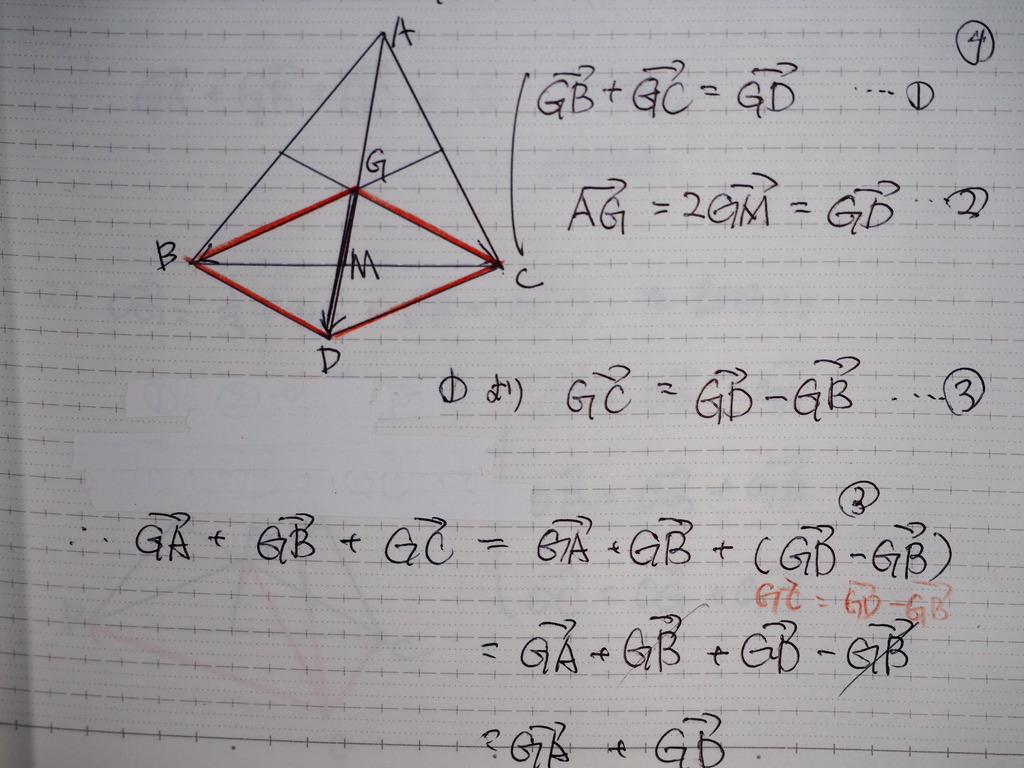 ④
A
G
B
M
C
D
GB→ + GC→ = GD→ ····①
AG→ = 2GM→ = GD→ ···②
①より GC→ = GD→ - GB→ ····③
∴ GA→ + GB→ + GC→ = GA→ + GB→ + (GD→ - GB→)
③
GC→ = GD→ - GB→
= GA→ + GB→ + GD→ - GB→
= GA→ + GD→